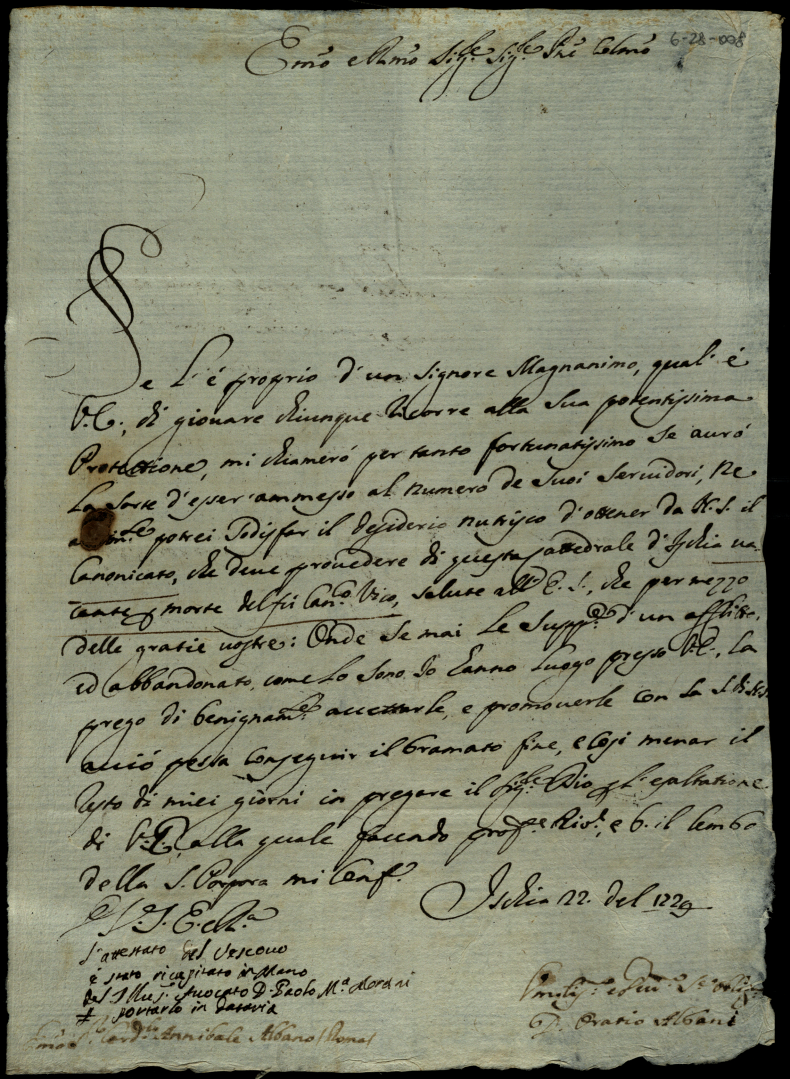 6-28-008
Em̃o e Rm̃o Sig.re Sig.re Pñe Colm̃o
Se L'é proprio d'un Signore Magnanimo, qual'é
V.E., di giovare chiunque ricorre alla sua potentissima
Protettione, mi chiameró per tanto fortunatissimo se avró
La sorte d'esser ammesso al numero de suoi servidori, Ne
potrei sodisfar il desiderio nutrisco d'ottener da N.S. il
Canonicato, che deve provedere di questa Cattedrale d'Ischia va
cante morte del fú Can.co Vico, salute all'E.S., che per mezzo
delle gratie vostre: Onde se mai le supp.e d'un afflitto,
ed abbandonato, come Lo sono Io hanno luogo presso V.E., la
prego di benignam.te accettarle, e promoverle con la S. di N.S.
acció possa conseguir il bramato fine, e cosi menar il
resto di miei giorni in pregare il Sig.re Dio l'esaltatione
di V.E., alla quale facendo prof.e Riv.a, e b. il lembo
della S. Porpora mi conf.o
Ischia 22. del 1729
D. V. E. e R.a
L'attestato del Vescovo
é stato ricapitato in mano
del Illus. Avocato D. Paolo M.a
portarlo in dataria
D. Oratio Albani
Card. Annibale Albano (Roma)